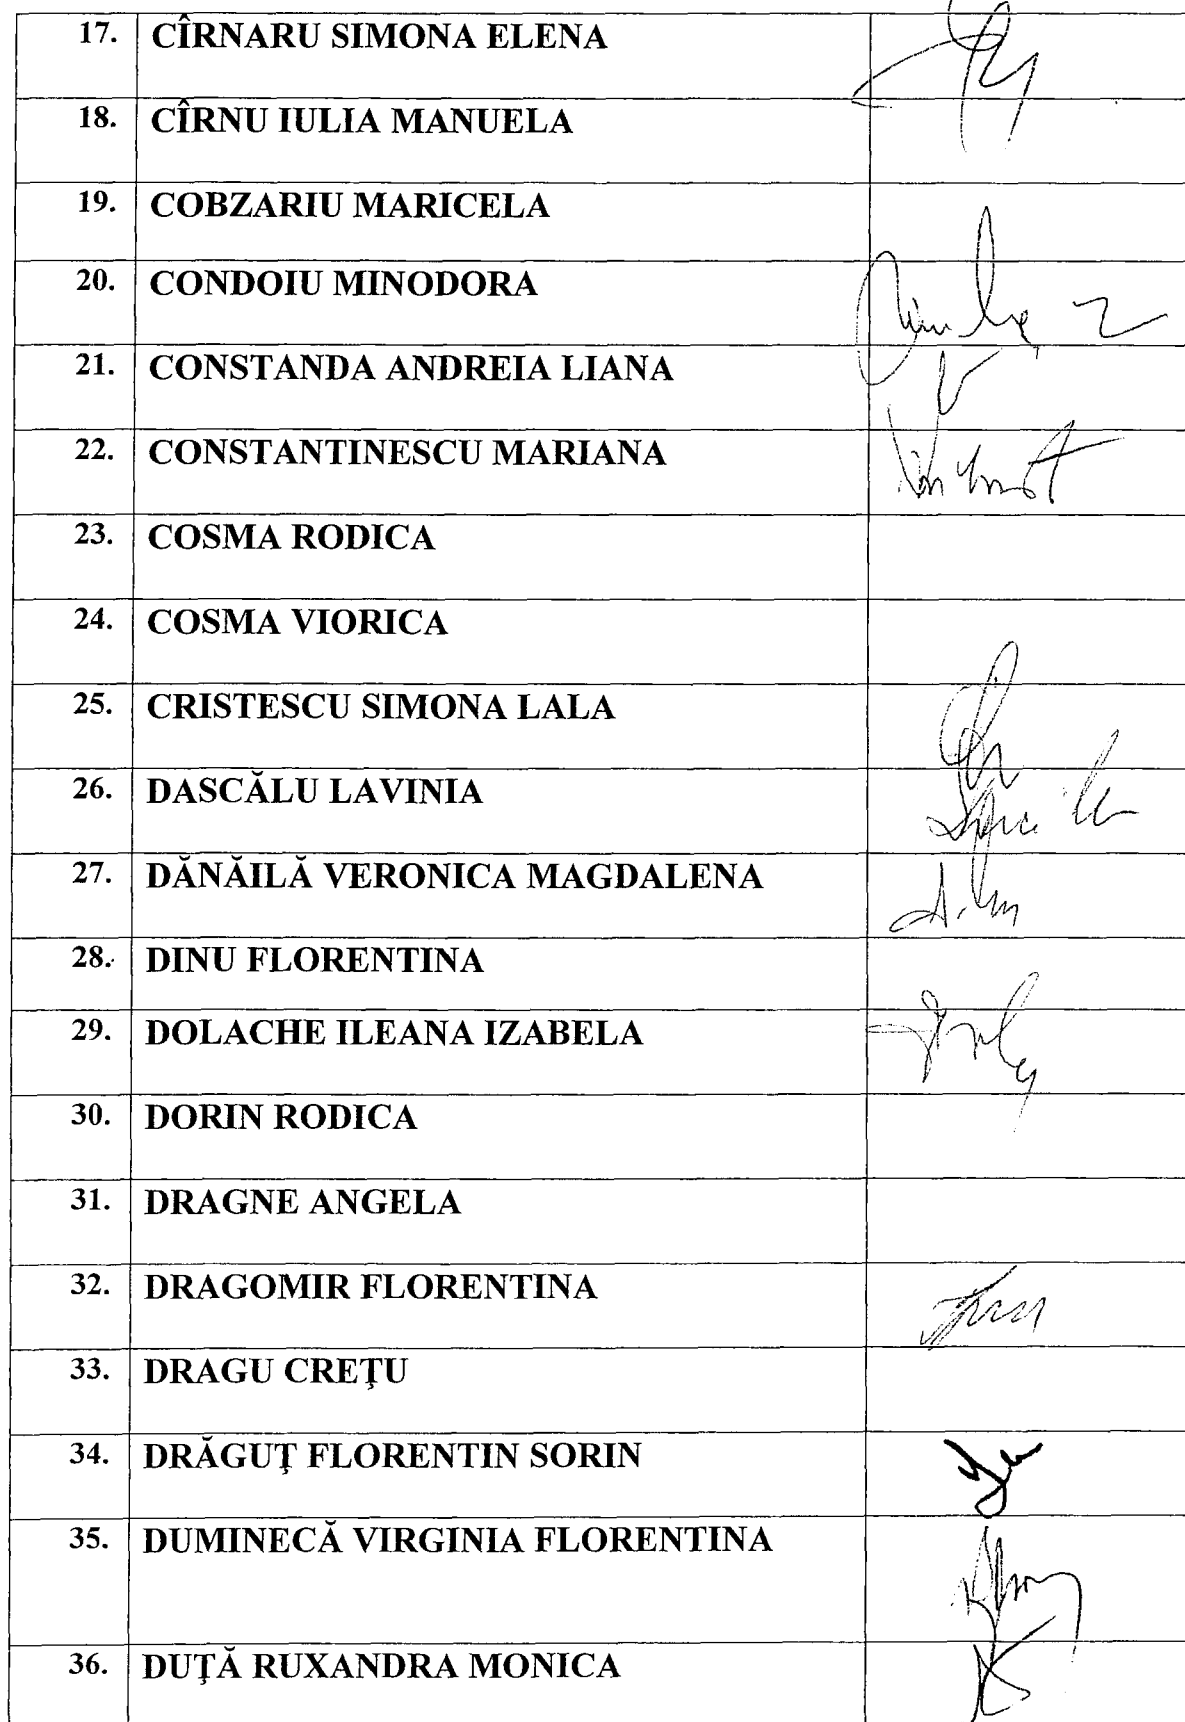 17. CÎRNARU SIMONA ELENA
18. CÎRNU IULIA MANUELA
19. COBZARIU MARICELA
20. CONDOIU MINODORA
21. CONSTANDA ANDREIA LIANA
22. CONSTANTINESCU MARIANA
23. COSMA RODICA
24. COSMA VIORICA
25. CRISTESCU SIMONA LALA
26. DASCĂLU LAVINIA
27. DĂNĂILĂ VERONICA MAGDALENA
28. DINU FLORENTINA
29. DOLACHE ILEANA IZABELA
30. DORIN RODICA
31. DRAGNE ANGELA
32. DRAGOMIR FLORENTINA
33. DRAGU CREŢU
34. DRĂGUŢ FLORENTIN SORIN
35. DUMINECĂ VIRGINIA FLORENTINA
36. DUŢĂ RUXANDRA MONICA